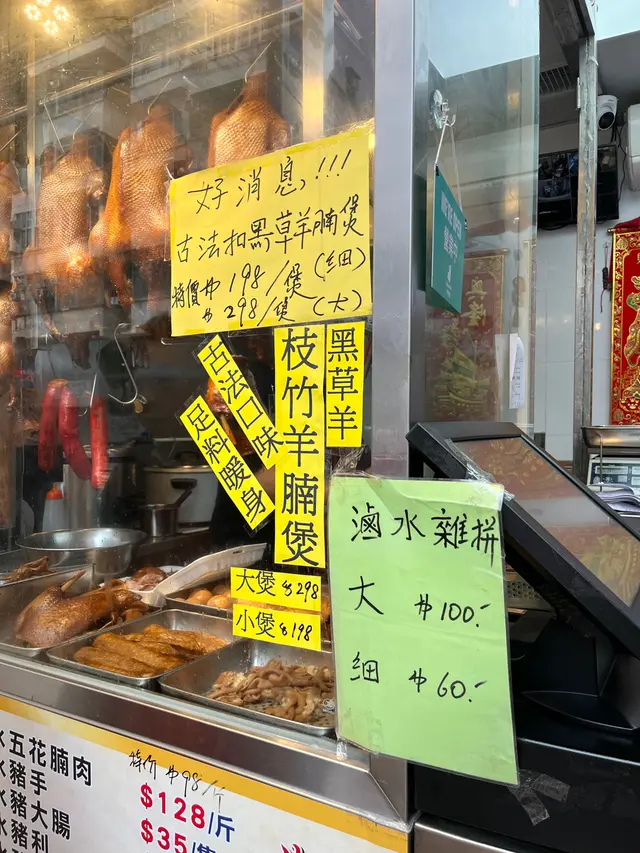 好消息,!!!
古法扣黑草羊腩煲
特價 $198/煲(細)
$298/煲(大)
古法口味
足料暖身
枝竹羊腩煲
黑草羊
大煲 $298
小煲 $198
滷水雜拼
大 $100.-
細 $60.-
水五花腩肉
特價 $98/斤
水豬手
$128/斤
水豬大腸
$35/
水豬利